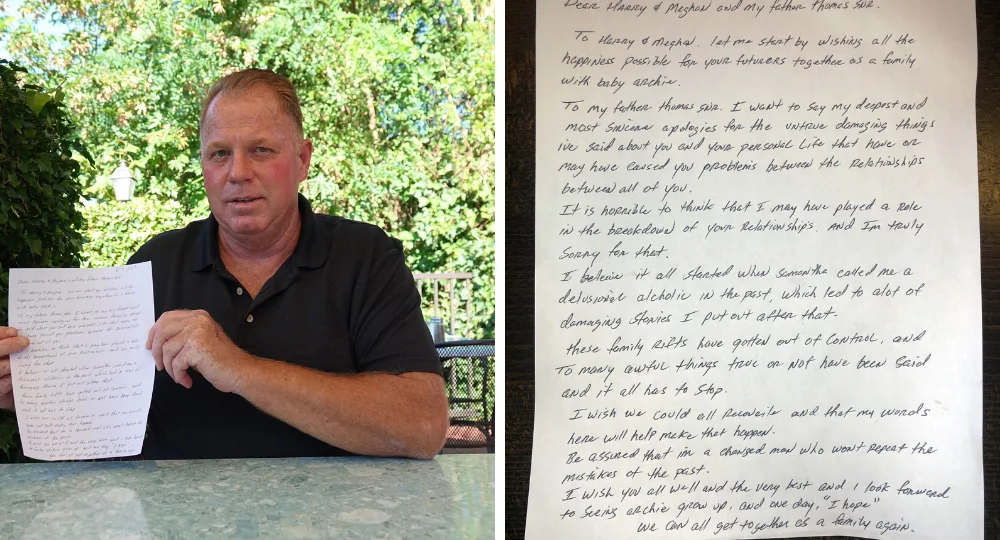 Dear Harry & Meghan and my father Thomas SNR.
To Harry & Meghan. let me start by wishing all the
happiness possible for your futurers together as a family
with baby archie.
To my father thomas SNR. I want to say my deepest and
most Sincere apologies for the untrue damaging things
i've said about you and your personal Life that have or
may have caused you problems between the Relationships
between all of you.
It is horrible to think that I may have played a Role
in the breakdown of your Relationships. And I'm truly
Sorry for that.
I beleive it all started when Samantha called me a
delusional alcholic in the past, which led to alot of
damaging Stories I put out after that.
these family RIFTs have gotten out of Control, and
To many awful things true or Not have been Said
and it all has to Stop.
I wish we could all Reconcile and that my words
here will help make that happen.
Be assured that im a changed man who wont Repeat the
mistakes of the past.
I wish you all well and the very best and i look forward
to Seeing archie grow up, and one day, "I hope"
we can all get together as a family again.